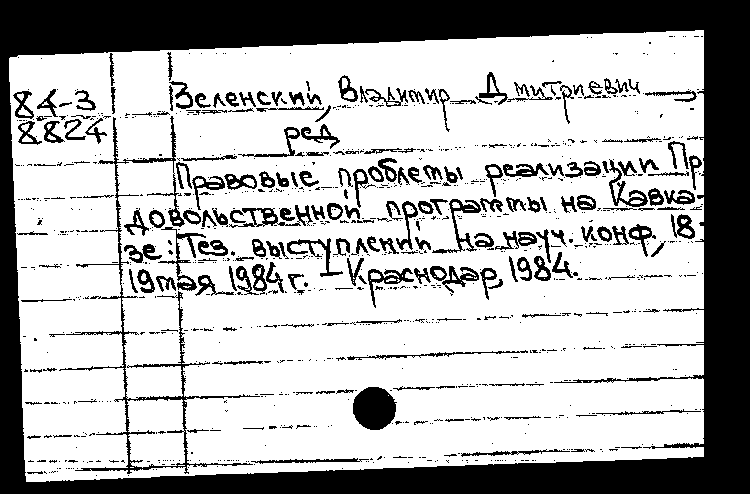 84-3
8824
Зеленский, Владимир Дмитриевич
ред.
Правовые проблемы реализации Пр
довольственной программы на Кавка-
зе: Тез. выступлений на науч. конф., 18-
19 мая 1984 г. – Краснодар, 1984.